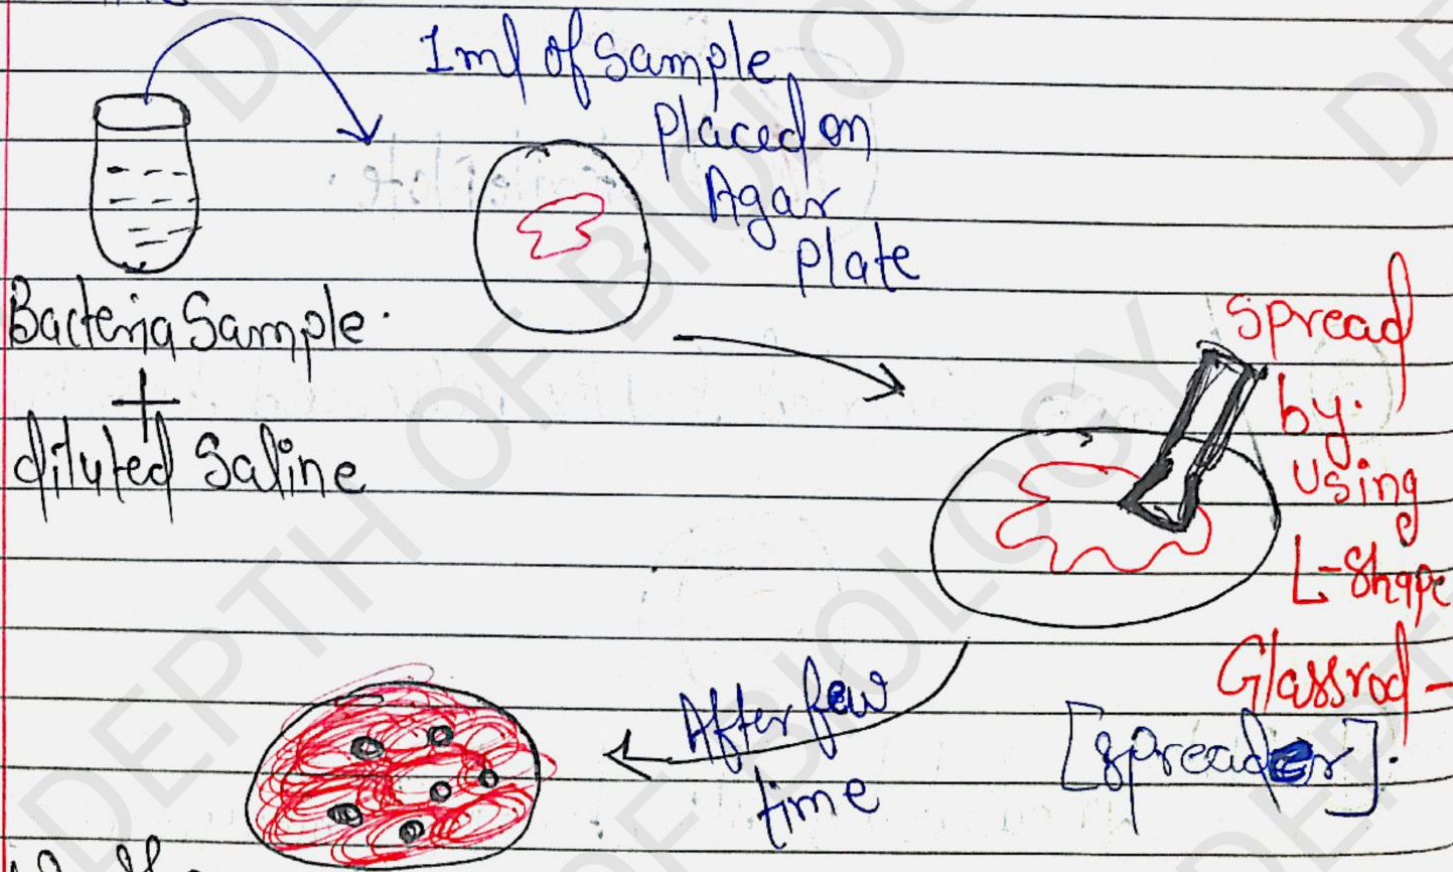 1ml of Sample
placed on
Agar
plate
Bacteria Sample.
+
diluted Saline
Spread
by.
Using
L-Shape
Glassrod -
[spreader].
After few
time
DEPTH OF BIOLOGY